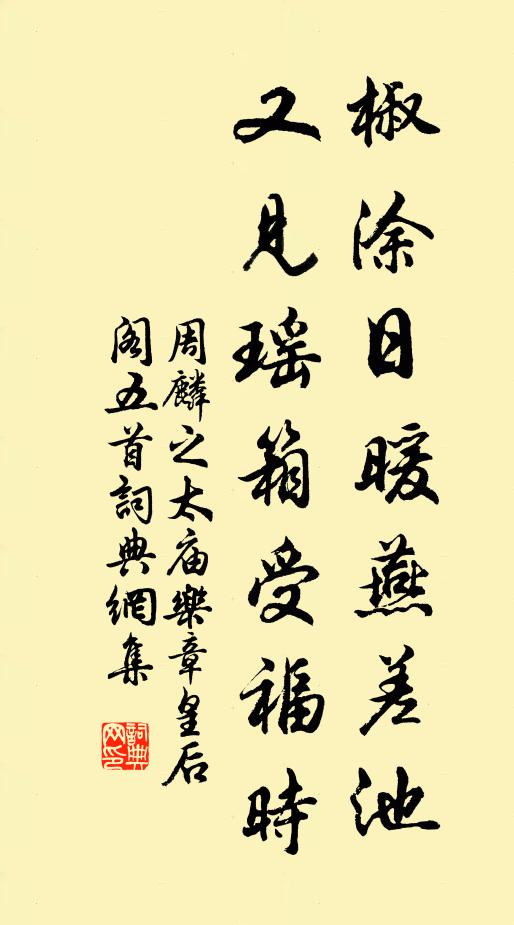 椒涂日暖燕差池
又见瑶箱受福時
周麟之太庙樂章皇后
阁五首詞典網集
詞典网印